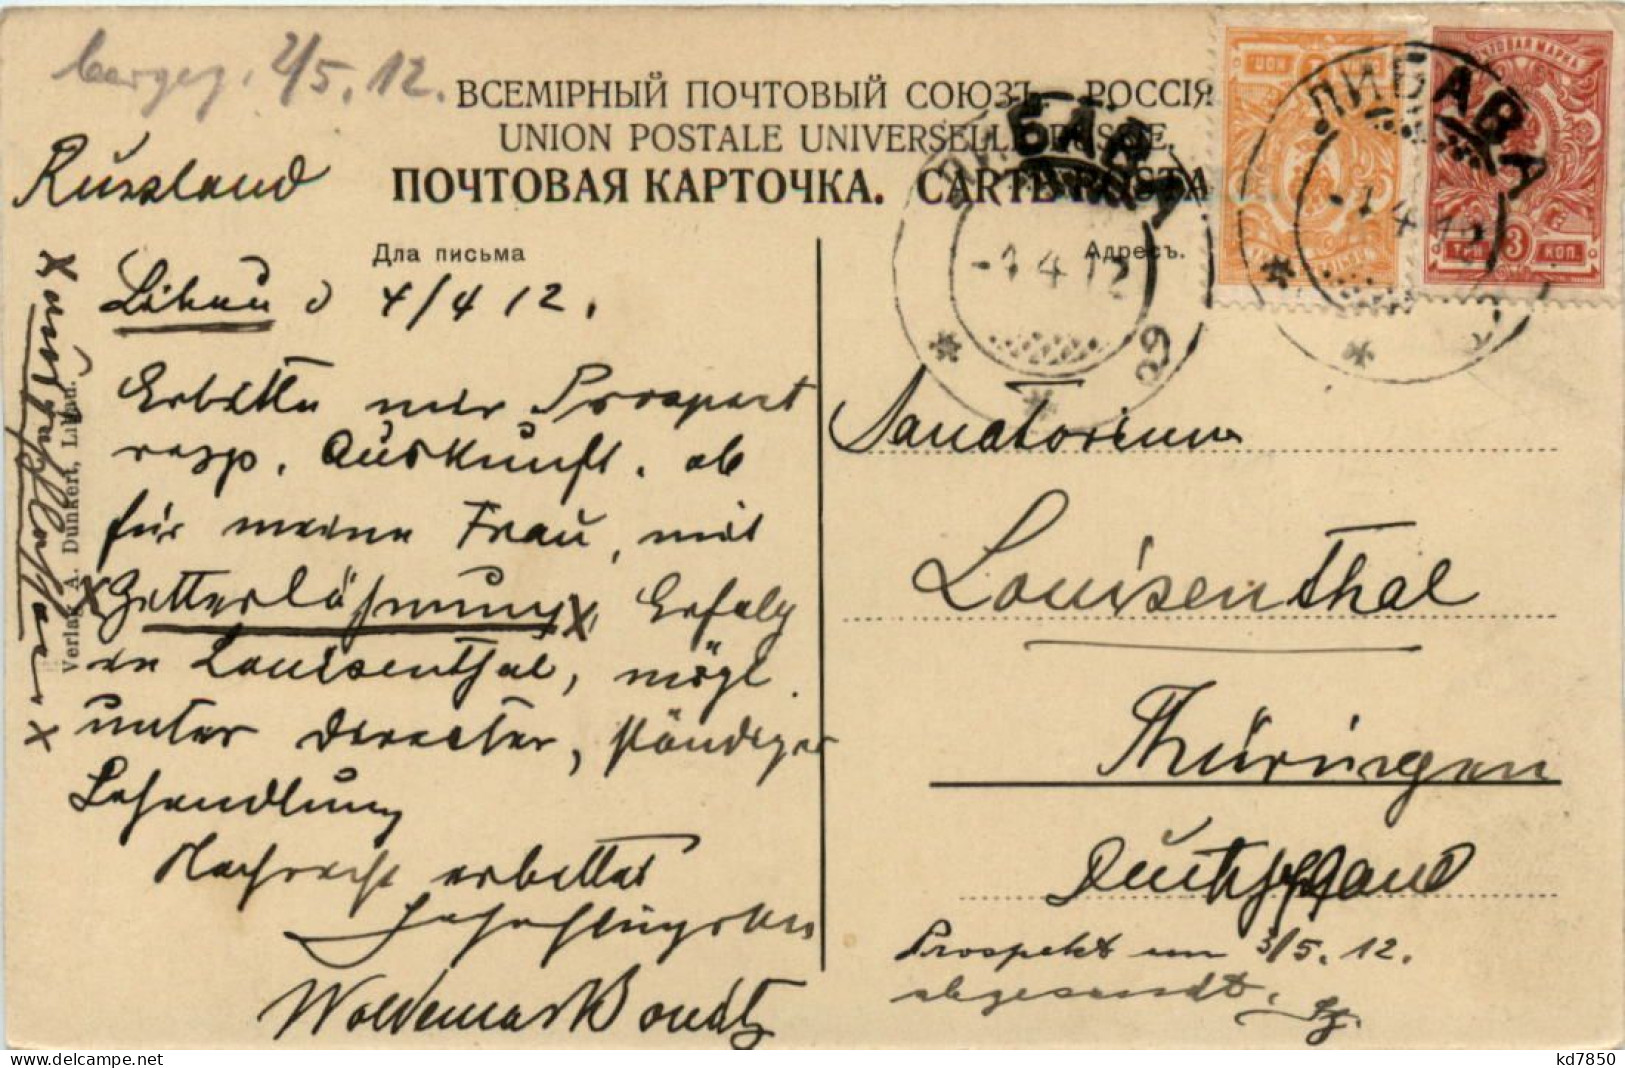 2/5.12.
ВСЕМІРНЫЙ ПОЧТОВЫЙ СОЮЗЪ. РОССІЯ
UNION POSTALE UNIVERSELLE RUSSIE.
ПОЧТОВАЯ КАРТОЧКА. CARTE POSTA
Russland
Для письма
Адресъ.
ЛИБАВА
-1 4 12
ЛИБАВА
-1 4 12
3
КОП.
Libau d 4/4 12.
Erbitte mir Prospect
resp. Auskunft. ob
für meine Frau, mit
x Zitterlähmung x, Erfolg
in Louisenthal, mögl.
unter directer, ständiger
Behandlung
Nachricht erbittet
Woldemar Bonitz
Verlag A. Dunkert, Libau.
Sanatorium
Louisenthal
Thüringen
Deutschland
Prospekt am 3/5. 12.
abgesandt.
kd7850